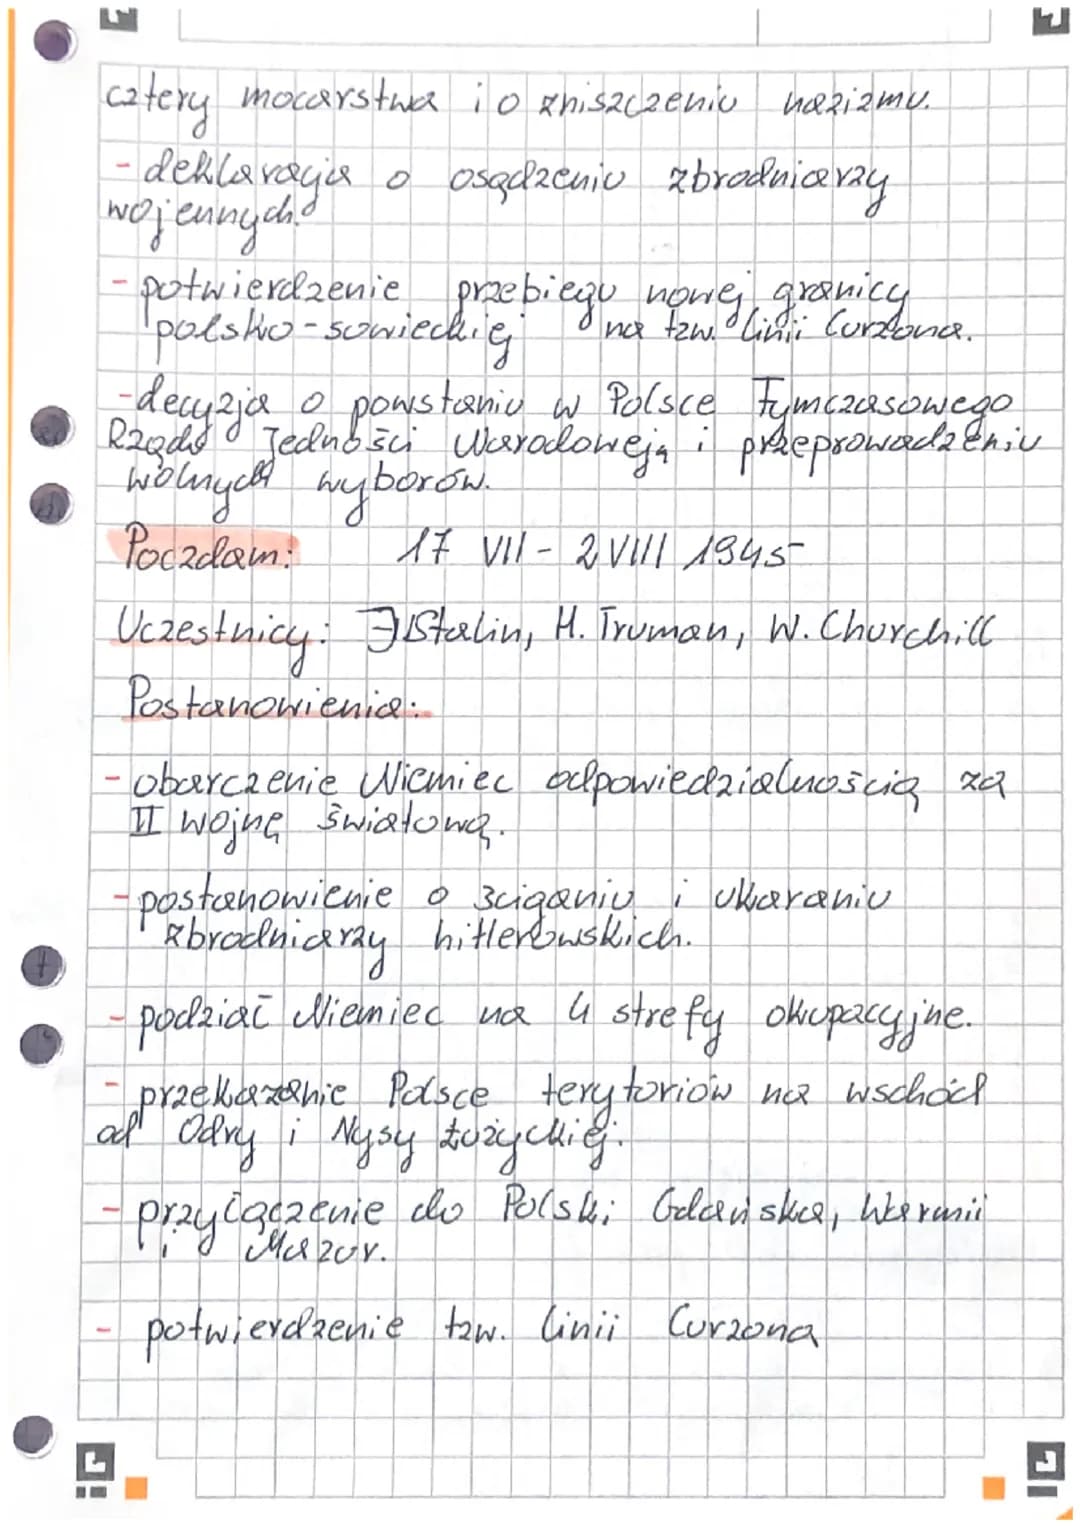 cztery mocarstwa i o zniszczeniu nazizmu.
- deklaracja o osądzeniu zbrodniarzy
wojennych.
- potwierdzenie przebiegu nowej granicy
polsko-sowieckiej na tzw. linii Curzona.
- decyzja o powstaniu w Polsce Tymczasowego
Rządu Jedności Narodowej i przeprowadzeniu
wolnych wyborów.
Poczdam: 17 VII - 2 VIII 1945
Uczestnicy: J Stalin, H. Truman, W. Churchill
Postanowienia:
- obarczenie Niemiec odpowiedzialnością za
II wojnę światową.
- postanowienie o ściganiu i ukaraniu
zbrodniarzy hitlerowskich.
- podział Niemiec na 4 strefy okupacyjne.
- przekazanie Polsce terytoriów na wschód
od Odry i Nysy Łużyckiej.
- przyłączenie do Polski Gdańska, Warmii
i Mazur.
- potwierdzenie tzw. linii Curzona